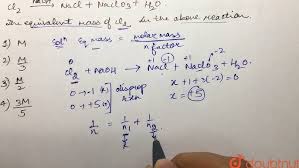 Cl2 NaOH NaCl + NaClO3 + H2O.
The equivalent mass of Cl2 in the above reaction.
1) M
2) M/2
3) M/3
4) 3M/5
Solⁿ Eq mass = molar mass / n factor
0 -1 +5 -2
Cl2 + NaOH → NaCl + NaClO3 + H2O
0 → -1 (x)
0 → +5 (x)
disprop rxn
x + 1 + 3(-2) = 0
x = +5
1/n = 1/n1 + 1/n2
doubtnut